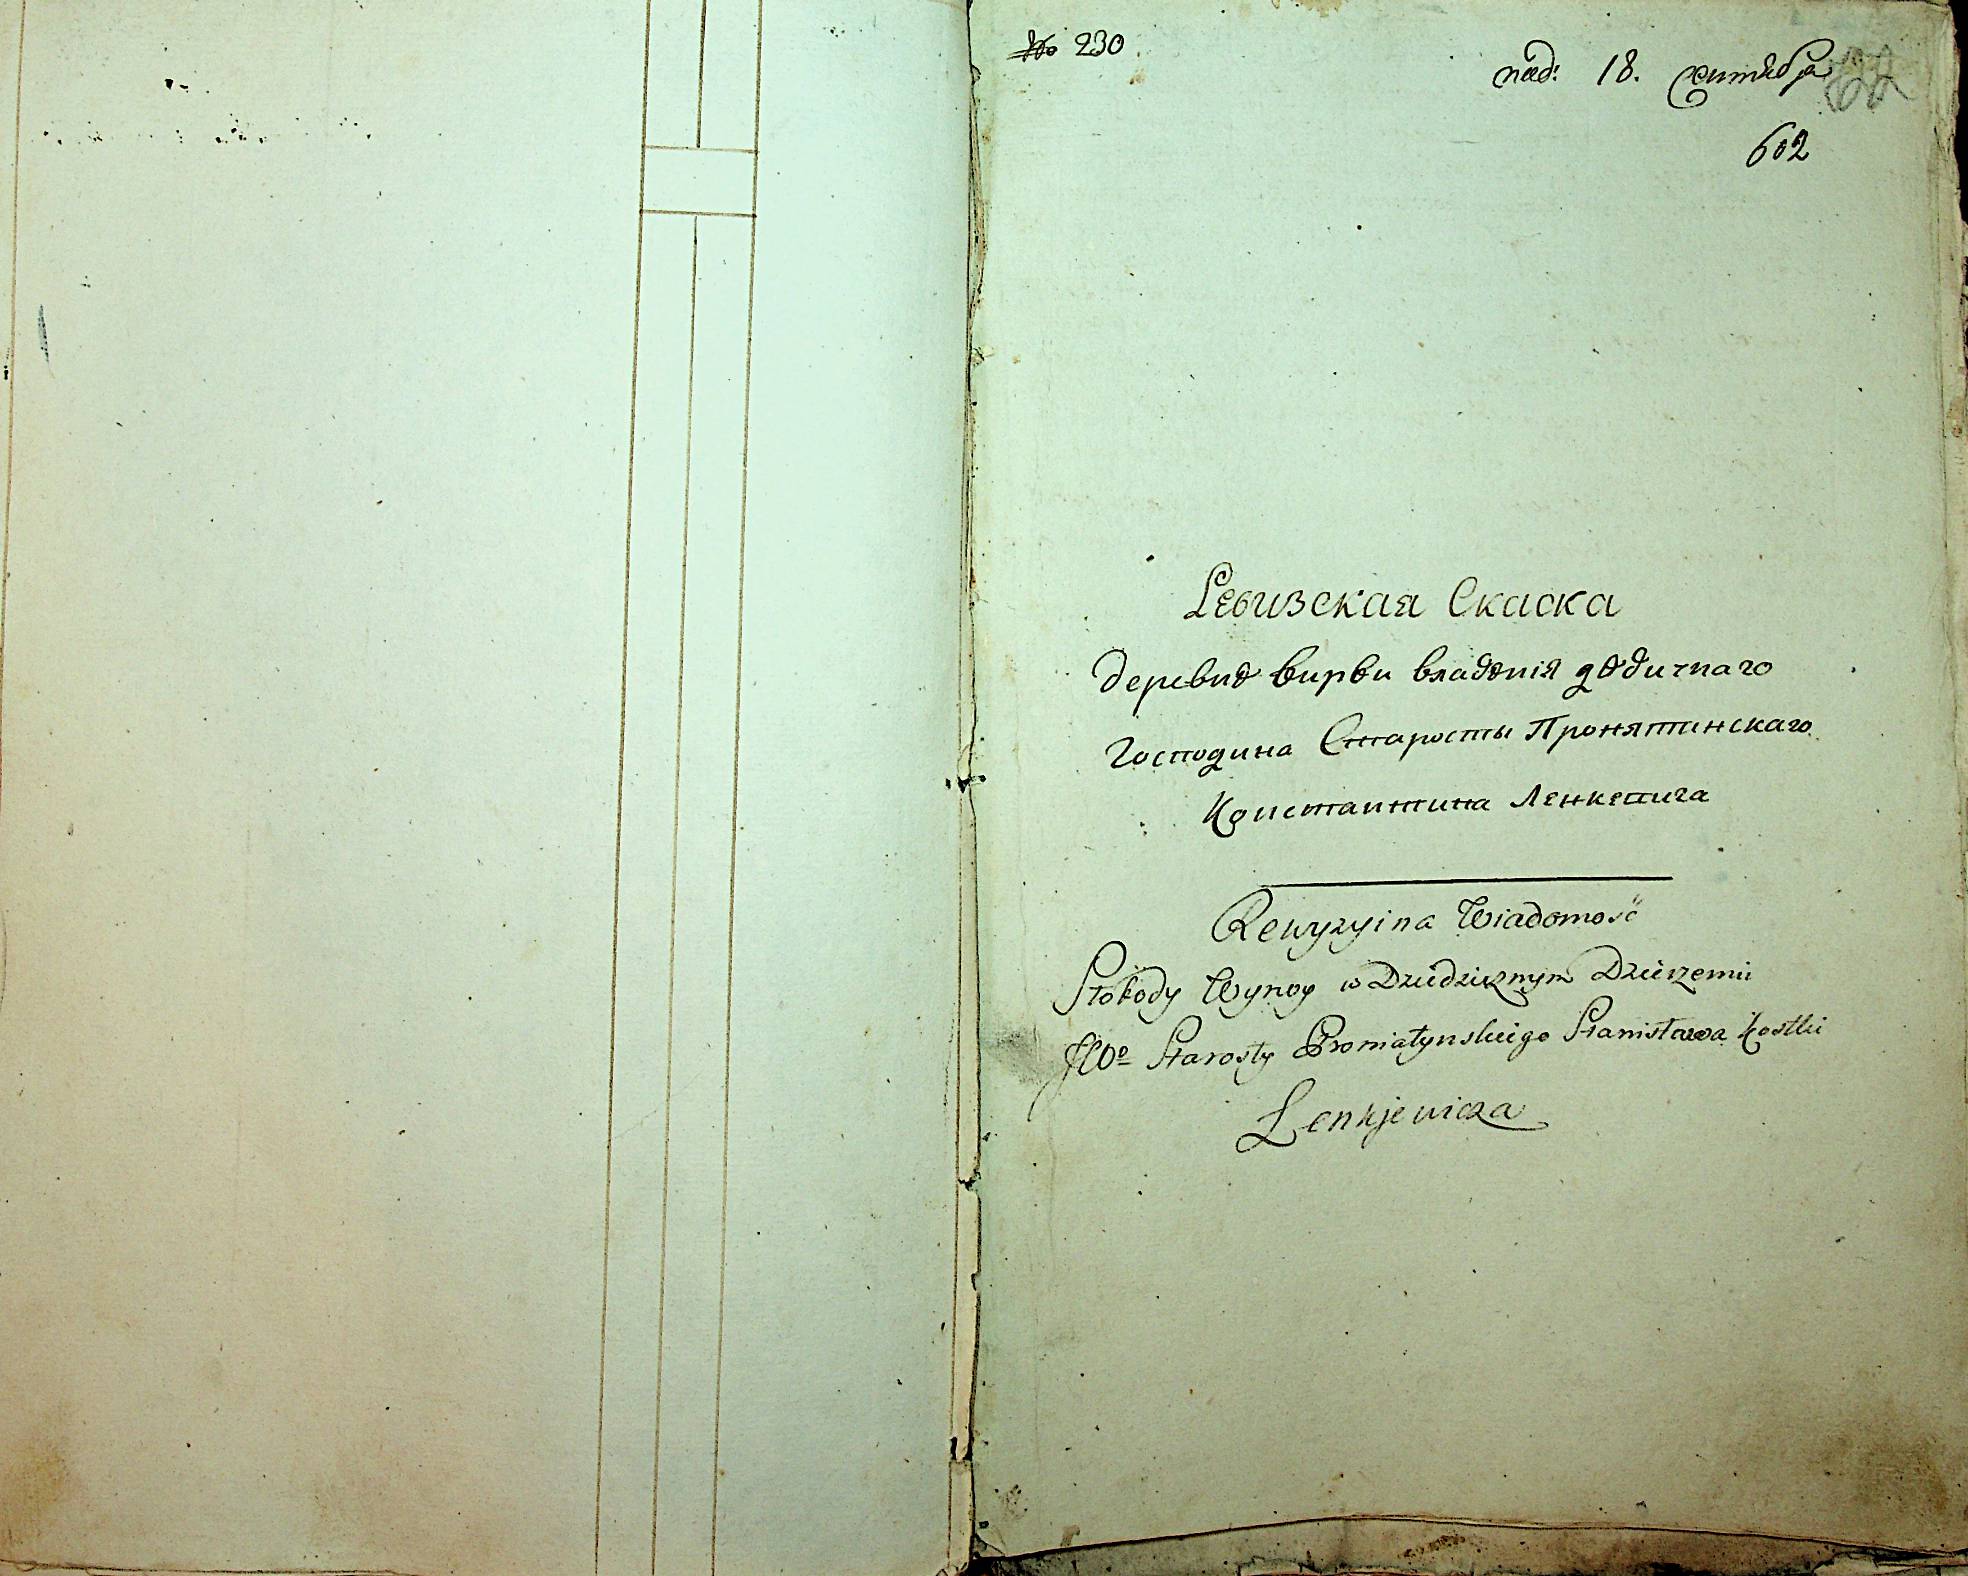 № 230
под: 18. сентября
602
Ревизская Скаска
деревнѣ Вирви владѣнія дѣдичнаго
Господина Старосты Пронятинскаго
Константина Ленкевича
Rewyzyina Wiadomość
Słobody Wyrvy w Dziedzicznym Dzierżeniu
JWo Starosty Proniatynskiego Stanisława Kostki
Lenkjewicza